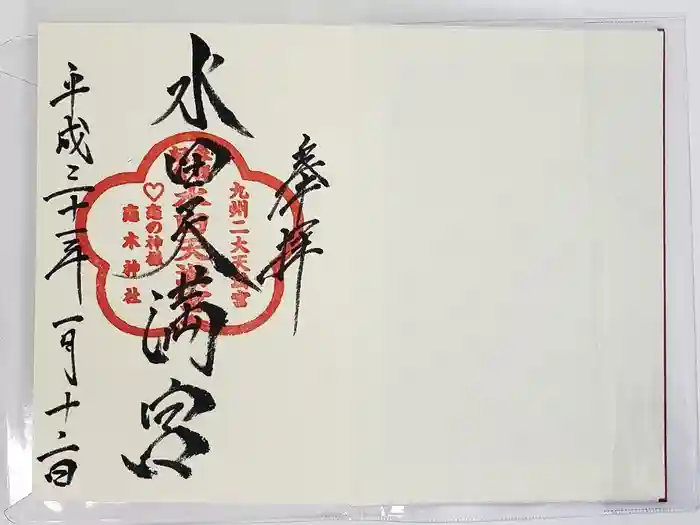 奉拝
水田天満宮
平成三十一年一月十二日
九州二大天満宮
♡恋の神様
恋木神社